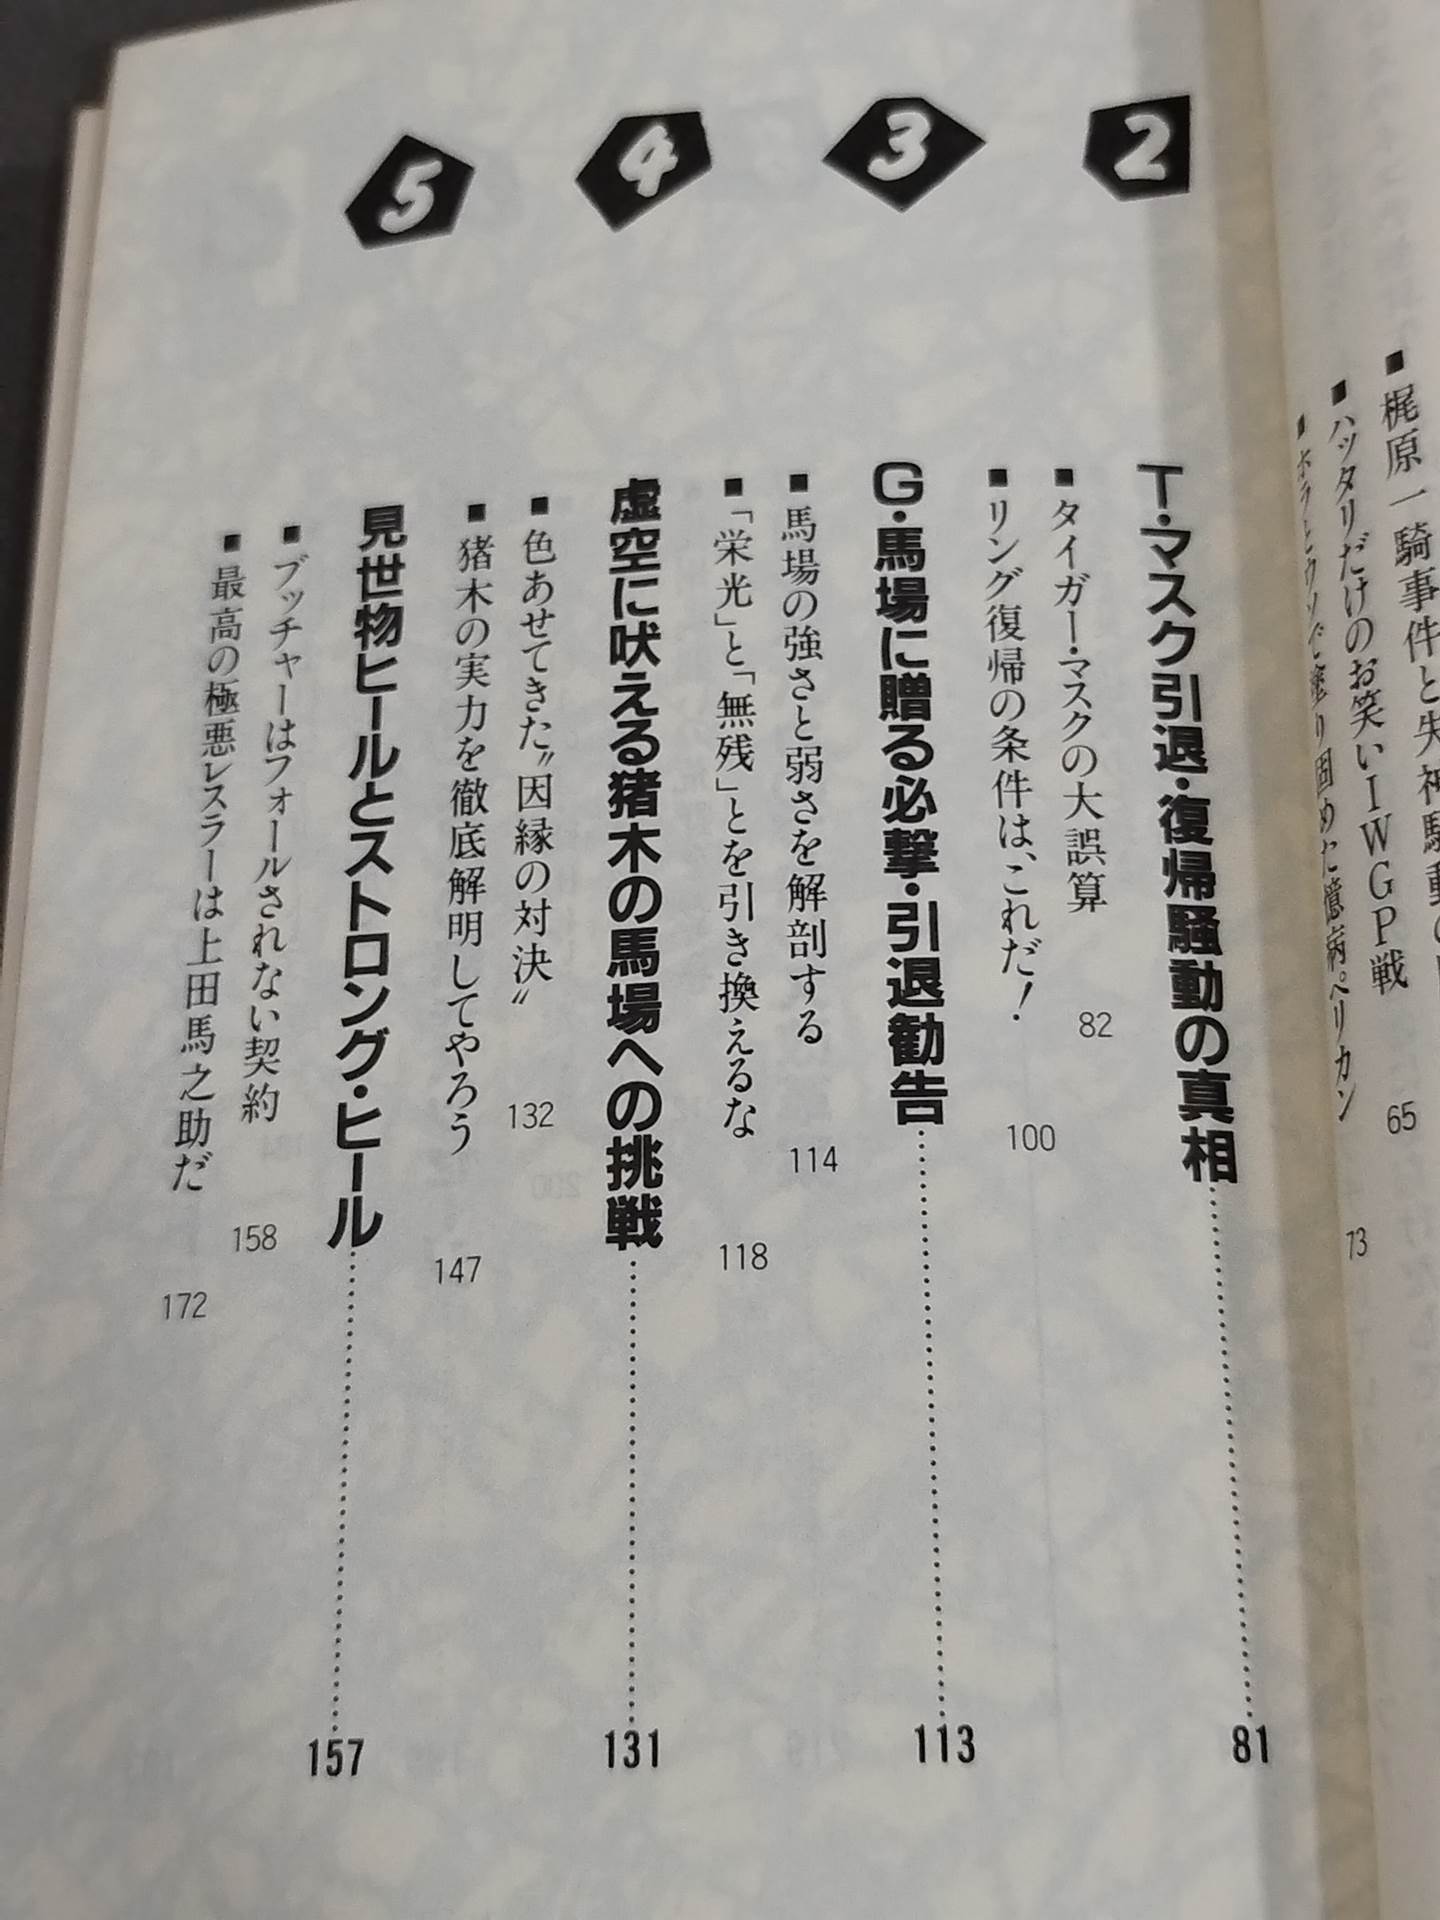 ■梶原一騎事件と失神騒動の
65
■ハッタリだけのお笑いIWGP戦
73
■ホラとウソで塗り固めた臆病ペリカン
2
T・マスク引退・復帰騒動の真相……81
■タイガー・マスクの大誤算 82
■リング復帰の条件は、これだ! 100
3
G・馬場に贈る必撃・引退勧告……113
■馬場の強さと弱さを解剖する 114
■「栄光」と「無残」とを引き換えるな 118
4
虚空に吠える猪木の馬場への挑戦……131
■色あせてきた〝因縁の対決〟 132
■猪木の実力を徹底解明してやろう 147
5
見世物ヒールとストロング・ヒール……157
■ブッチャーはフォールされない契約 158
■最高の極悪レスラーは上田馬之助だ 172